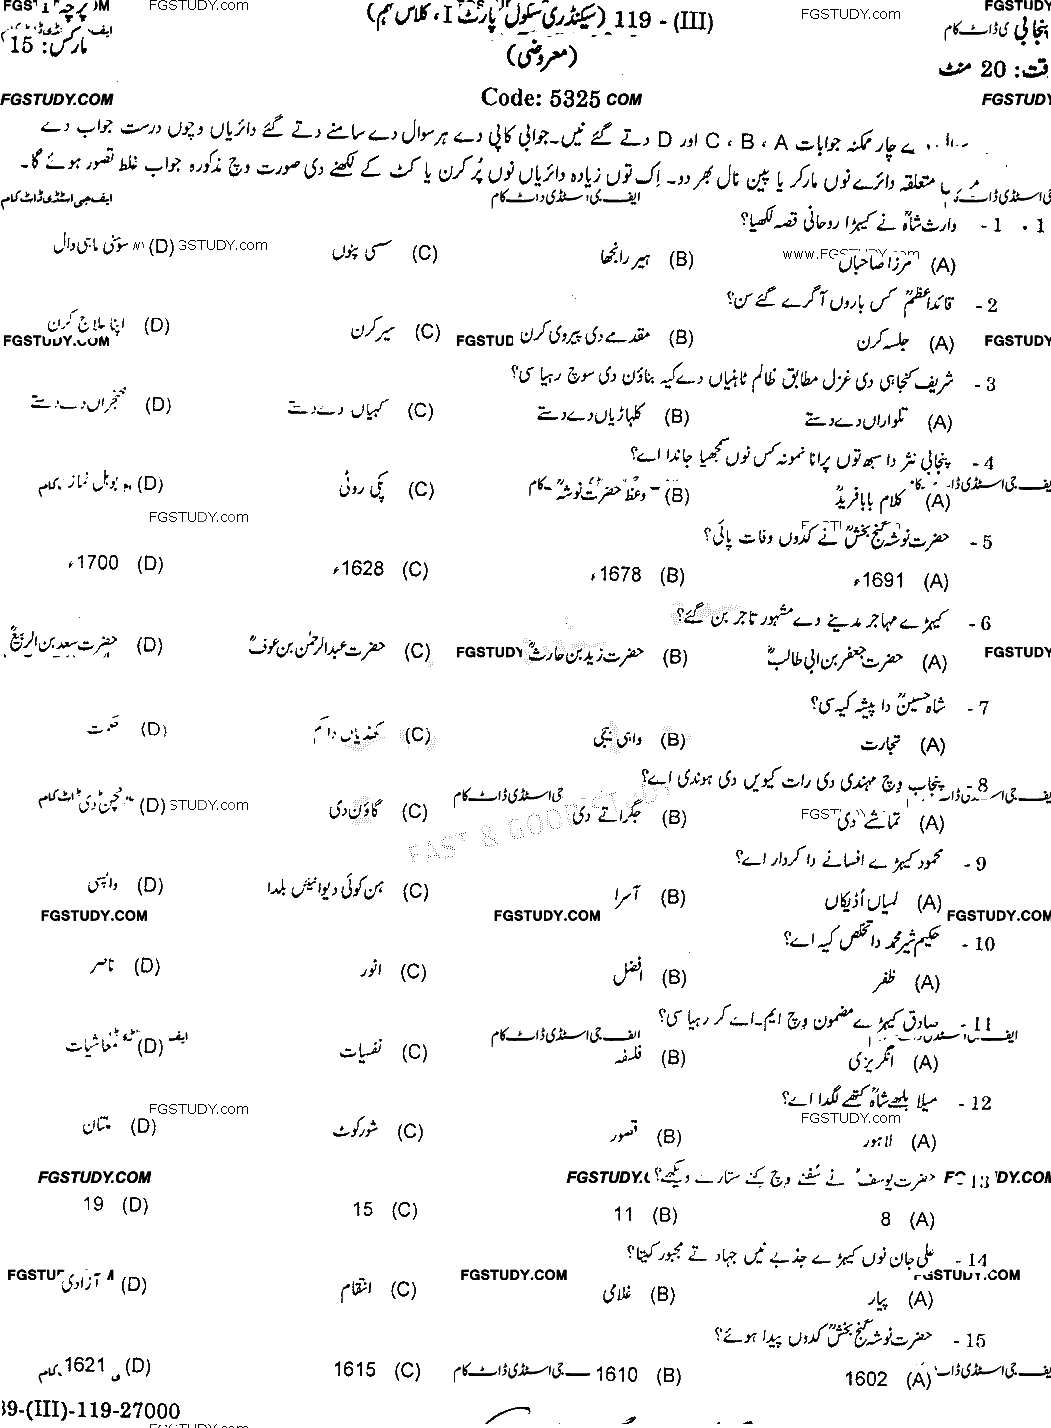 پرچہ I
119 - (III) (سیکنڈری سکول پارٹ I، کلاس نہم)
پنجابی
مارکس: 15
(معروضی)
وقت: 20 منٹ
Code: 5325
FGSTUDY.COM
چار ممکنہ جوابات A ، B ، C اور D دتے گئے نیں۔ جوابی کاپی دے ہر سوال دے سامنے دتے گئے دائریاں وچوں درست جواب دے
متعلقہ دائرے نوں مارکر یا پین نال بھر دو۔ اِک توں زیادہ دائریاں نوں پُر کرن یا کٹ کے لکھنے دی صورت وچ مذکورہ جواب غلط تصور ہوئے گا۔
1 . 1 - وارث شاہؒ نے کیہڑا روحانی قصہ لکھیا؟
(A) مرزا صاحباں (B) ہیر رانجھا (C) سسی پنوں (D) سوہنی ماہی وال
2 - قائداعظمؒ کس باروں آگرے گئے سن؟
(A) جلسہ کرن (B) مقدمے دی پیروی کرن (C) سیر کرن (D) اپنا علاج کرن
3 - شریف کنجاہی دی غزل مطابق ظالم ٹاہنیاں دے کیہ بناؤن دی سوچ رہیا سی؟
(A) تلواراں دے دستے (B) کلہاڑیاں دے دستے (C) کہیاں دے دستے (D) خنجراں دے دستے
4 - پنجابی نثر دا سبھ توں پرانا نمونہ کس نوں سمجھیا جاندا اے؟
(A) کلام بابا فریدؒ (B) وعظ حضرت نوشہؒ (C) پکی روٹی (D) بوہل نماز
5 - حضرت نوشہ گنج بخشؒ نے کدوں وفات پائی؟
(A) 1691ء (B) 1678ء (C) 1628ء (D) 1700ء
6 - کیہڑے مہاجر مدینے دے مشہور تاجر بن گئے؟
(A) حضرت جعفر بن ابی طالبؓ (B) حضرت زید بن حارثؓ (C) حضرت عبدالرحمٰن بن عوفؓ (D) حضرت سعد بن الربیعؓ
7 - شاہ حسینؒ دا پیشہ کیہ سی؟
(A) تجارت (B) واہی بیجی (C) کھڈیاں دا کم (D)
8 - پنجاب وچ مہندی دی رات کیویں دی ہوندی اے؟
(A) تماشے دی (B) جگراتے دی (C) گاؤن دی (D) نچن دی
9 - محمود کیہڑے افسانے دا کردار اے؟
(A) لمیاں اُڈیکاں (B) آسرا (C) ہن کوئی دیوا نئیں بلدا (D) واپسی
10 - حکیم شیر محمد دا تخلص کیہ اے؟
(A) ظفر (B) افضل (C) انور (D) ناصر
11 - صادق کیہڑے مضمون وچ ایم۔اے کر رہیا سی؟
(A) انگریزی (B) فلسفہ (C) نفسیات (D) معاشیات
12 - میلا بلھے شاہؒ کتھے لگدا اے؟
(A) لاہور (B) قصور (C) شورکوٹ (D) ملتان
13 حضرت یوسفؑ نے سُفنے وچ کنے ستارے ویکھے؟
(A) 8 (B) 11 (C) 15 (D) 19
14 - علی جان نوں کیہڑے جذبے نیں جہاد تے مجبور کیتا؟
(A) پیار (B) غلامی (C) انتقام (D) آزادی
15 - حضرت نوشہ گنج بخشؒ کدوں پیدا ہوئے؟
(A) 1602 (B) 1610 (C) 1615 (D) 1621
39-(III)-119-27000